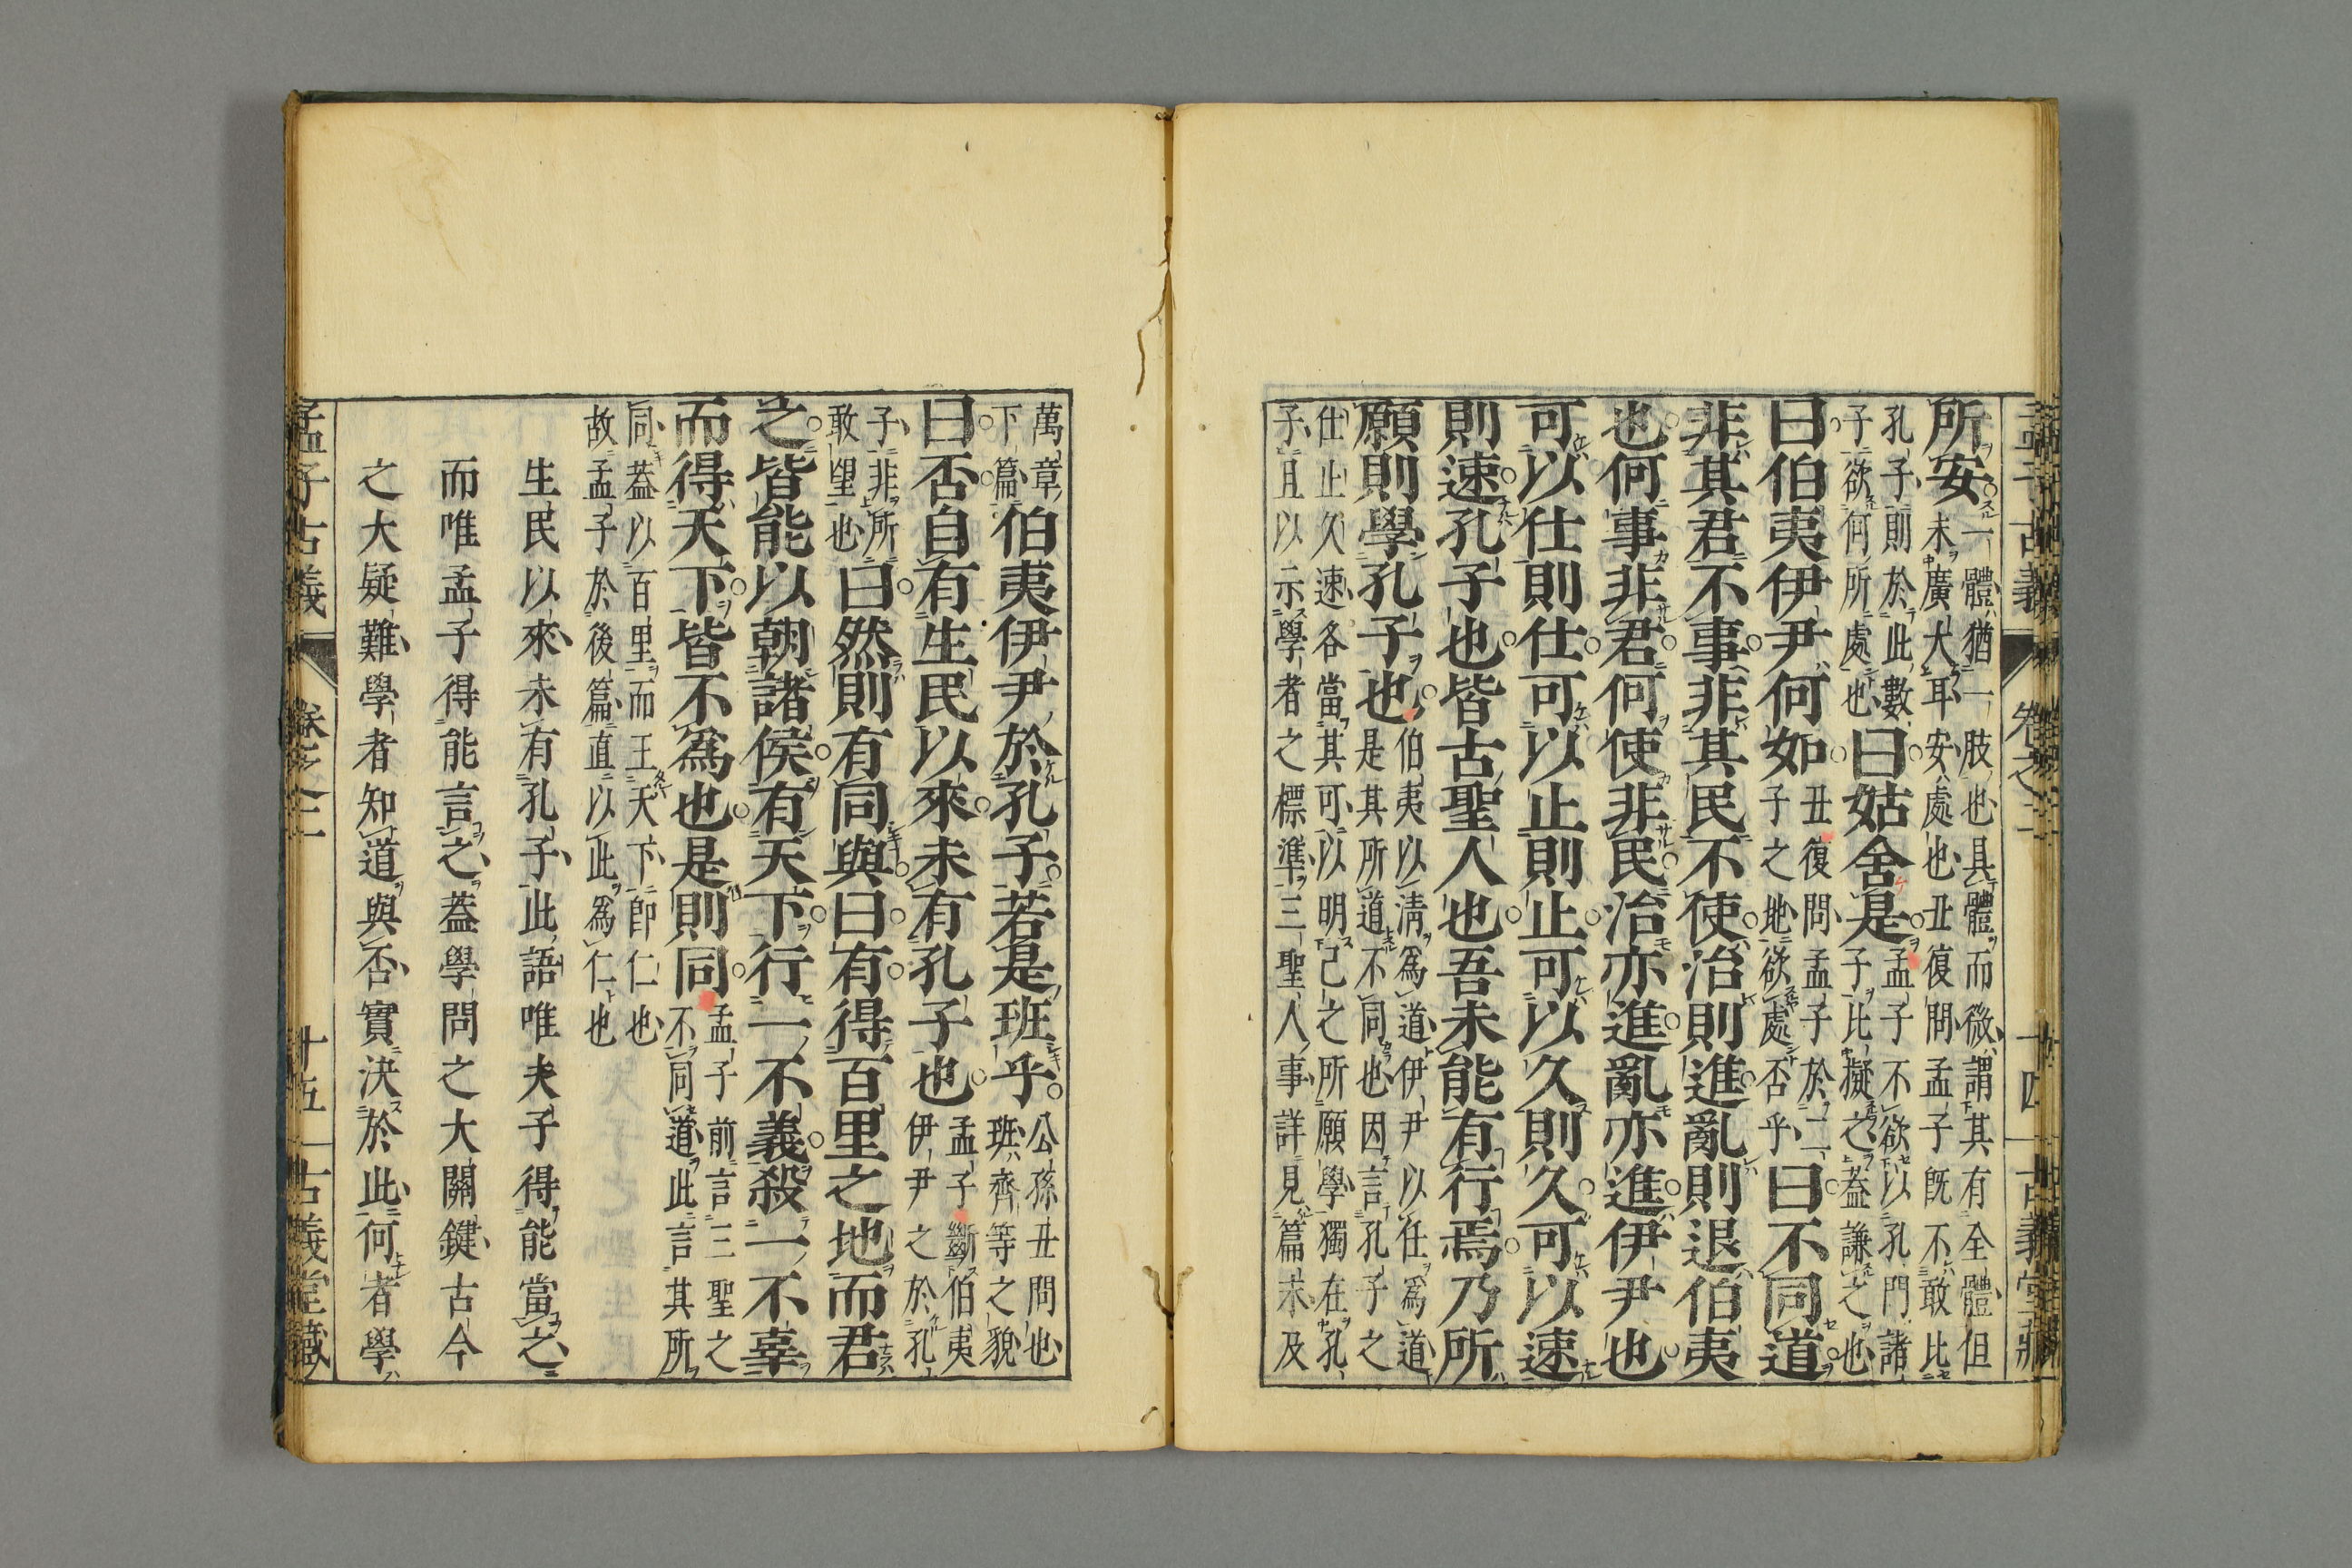 孟子古義 卷之二 十四 古義堂藏
所安一體猶一肢也具體而微謂其有全體但
未廣大耳安處也丑復問孟子既不敢比
孔子則於此數
子欲何所處也曰姑舍是孟子不欲以孔門諸
子比擬之蓋謙之也
曰伯夷伊尹何如丑復問孟子於二
子之地欲處否乎曰不同道
非其君不事非其民不使治則進亂則退伯夷
也何事非君何使非民治亦進亂亦進伊尹也
可以仕則仕可以止則止可以久則久可以速
則速孔子也皆古聖人也吾未能有行焉乃所
願則學孔子也伯夷以淸爲道伊尹以任爲道
是其所道不同也因言孔子之
仕止久速各當其可以明己之所願學獨在孔
子且以示學者之標準三聖人事詳見篇末及
萬章
下篇伯夷伊尹於孔子若是班乎公孫丑問也
班齊等之貌
曰否自有生民以來未有孔子也孟子斷伯夷
伊尹之於孔
子非所
敢望也曰然則有同與曰有得百里之地而君
之皆能以朝諸侯有天下行一不義殺一不辜
而得天下皆不爲也是則同孟子前言三聖之
不同道此言其所
同蓋以百里而王天下卽仁也
故孟子於後篇直以此爲仁也
生民以來未有孔子此語唯夫子得能當之
而唯孟子得能言之蓋學問之大關鍵古今
之大疑難學者知道與否實決於此何者學
孟子古義 卷之二 十五 古義堂藏